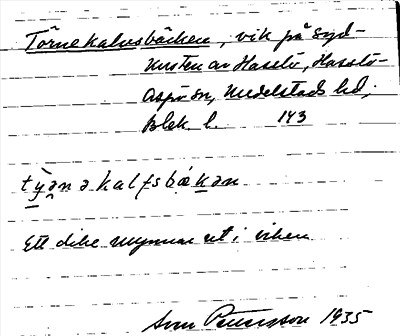 Törnekalvsbäcken, vik på syd-
kusten av Hasslö, Hasslö-
Aspö sn, Medelstads hd,
Blek. l. 143
ty̱ə̯nəkalfsbækən
Ett dike mynnar ut i viken
Sven Pettersson 1935